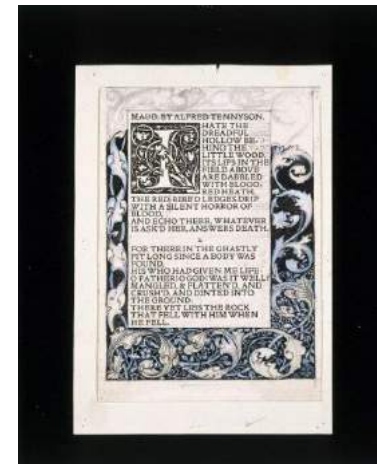 MAUD. BY ALFRED TENNYSON.
I HATE THE
DREADFUL
HOLLOW BE-
HIND THE
LITTLE WOOD,
ITS LIPS IN THE
FIELD ABOVE
ARE DABBLED
WITH BLOOD-
RED HEATH,
THE RED-RIBB'D LEDGES DRIP
WITH A SILENT HORROR OF
BLOOD,
AND ECHO THERE, WHATEVER
IS ASK'D HER, ANSWERS DEATH.
2
FOR THERE IN THE GHASTLY
PIT LONG SINCE A BODY WAS
FOUND,
HIS WHO HAD GIVEN ME LIFE
O FATHER! O GOD! WAS IT WELL?
MANGLED, & FLATTEN'D, AND
CRUSH'D, AND DINTED INTO
THE GROUND:
THERE YET LIES THE ROCK
THAT FELL WITH HIM WHEN
HE FELL.